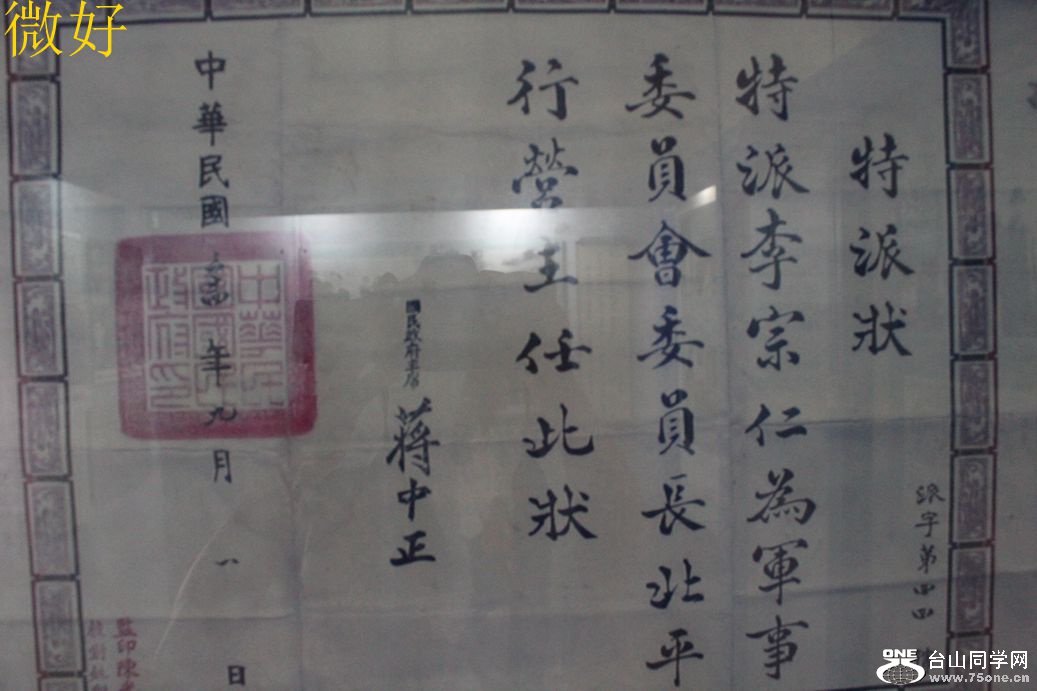 微好
特派狀
派字第四四
特派李宗仁為軍事
委員會委員長北平
行營主任此狀
國民政府主席
蔣中正
中華民國 年九月一日
監印陳
ONE
台山同学网
www.75one.cn